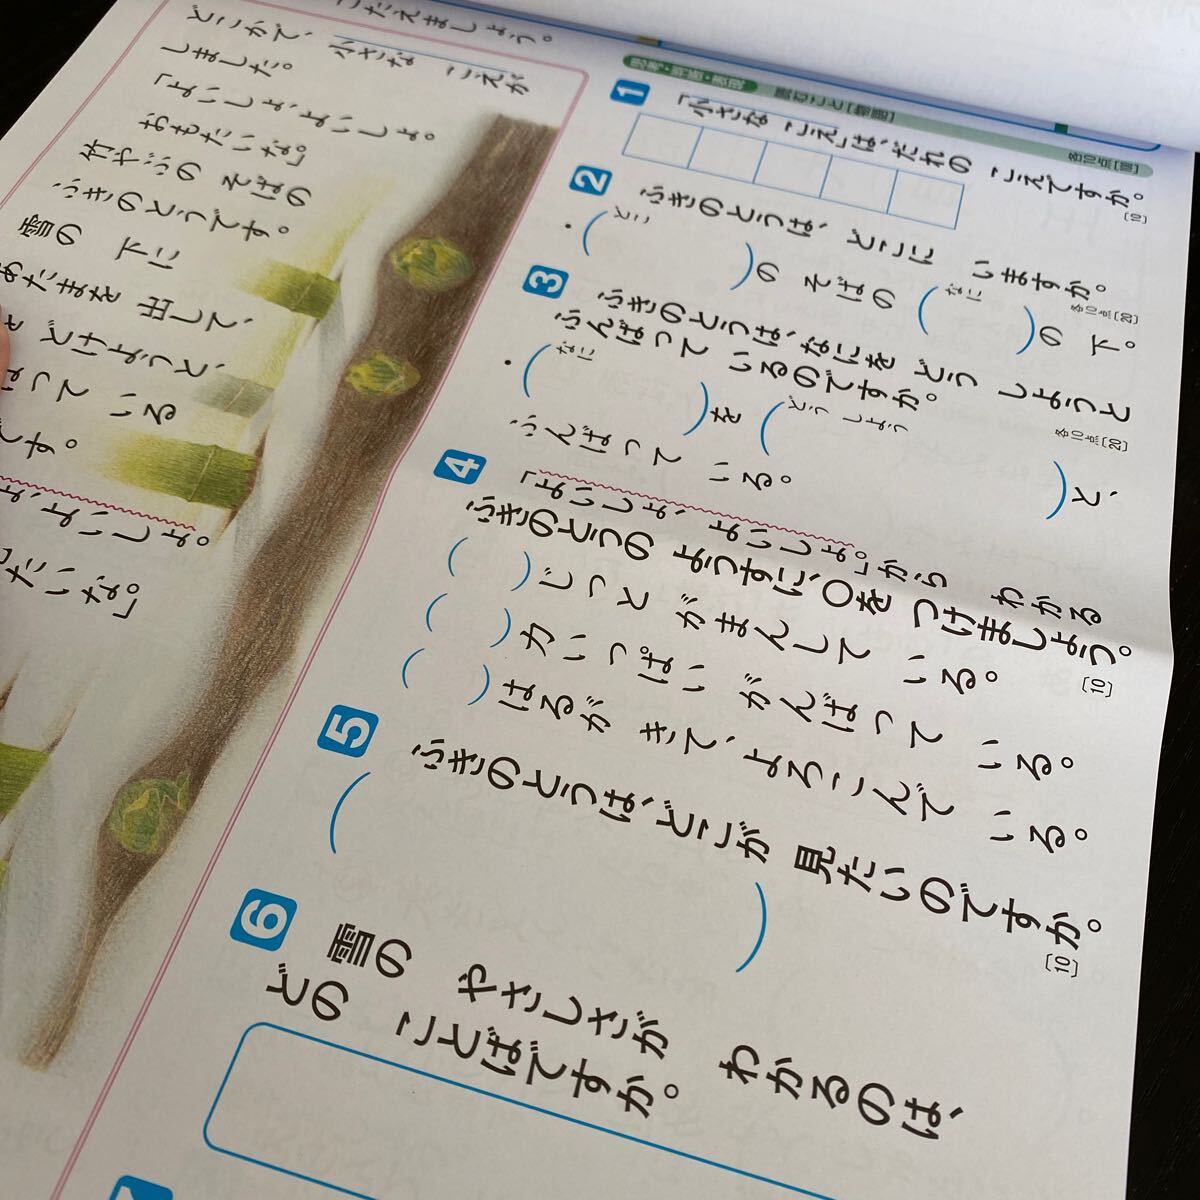 こたえましょう。
どこかで、小さな こえが
しました。
「よいしょ、よいしょ。
おもたいな。」
竹やぶの そばの
ふきのとうです。
雪の 下に
あたまを 出して、
どけようと、
いる
です。
よいしょ。
たいな。」
思考・判断・表現
読むこと[物語]
各10点[100]
1
「小さな こえ」は、だれの こえですか。
[10]
2
ふきのとうは、どこに いますか。
各10点[20]
・(どこ )の そばの (なに )の 下。
3
ふきのとうは、なにを どう しようと
ふんばって いるのですか。
各10点[20]
・(なに )を (どう しよう )と、
ふんばって いる。
4
「よいしょ、よいしょ。」から わかる
ふきのとうの ようすに、○を つけましょう。
[10]
( )じっと がまんして いる。
( )力いっぱい がんばって いる。
( )はるが きて、よろこんで いる。
5
ふきのとうは、どこが 見たいのですか。
[10]
( )
6
雪の やさしさが わかるのは、
どの ことばですか。
7